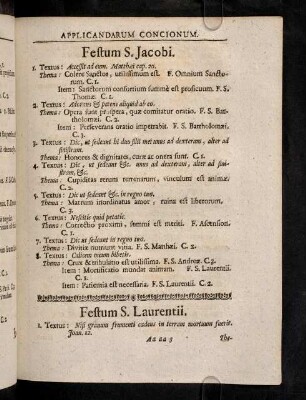 APPLICANDARUM CONCIONUM.
Festum S. Jacobi.
1. Textus: Accessit ad eum. Matthæi cap. 20.
Thema: Colere Sanctos, utilissimum est. F. Omnium Sancto-
rum. C. 1.
Item: Sanctorum consortium summè est proficuum. F. S.
Thomæ. C. 1.
2. Textus: Adorans & petens aliquid ab eo.
Thema: Opera sunt prospera, quæ comitatur oratio. F. S. Bar-
tholomæi. C. 2.
Item: Perseverans oratio impetrabit. F. S. Bartholomæi.
C. 3.
3. Textus: Dic, ut sedeant hi duo filii mei unus ad dexteram, alter ad
sinistram.
Thema: Honores & dignitates, cum ac onera sunt. C. 1.
4. Textus: Dic, ut sedeant &c. unus ad dexteram, alter ad sini-
stram, &c.
Thema: Cupiditas rerum terrenarum, vinculum est animæ.
C. 2.
5. Textus: Dic ut sedeant &c. in regno tuo.
Thema: Matrum inordinatus amor, ruina est liberorum.
C. 3.
6. Textus: Nescitis quid petatis.
Thema: Correctio proximi, summi est meriti. F. Ascension.
C. 1.
7. Textus: Dic ut sedeant in regno tuo.
Thema: Divinis nutrimur vitia. F. S. Matthæi. C. 2.
8. Textus: Calicem meum bibetis.
Thema: Crux & tribulatio est utilissima. F. S. Andreæ. C. 3.
Item: Mortificatio mundat animam. F. S. Laurentii.
C. 1.
Item: Patientia est necessaria. F. S. Laurentii. C. 2.
Festum S. Laurentii.
1. Textus: Nisi granum frumenti cadens in terram mortuum fuerit.
Joan. 12.
Aa aa 3 The-